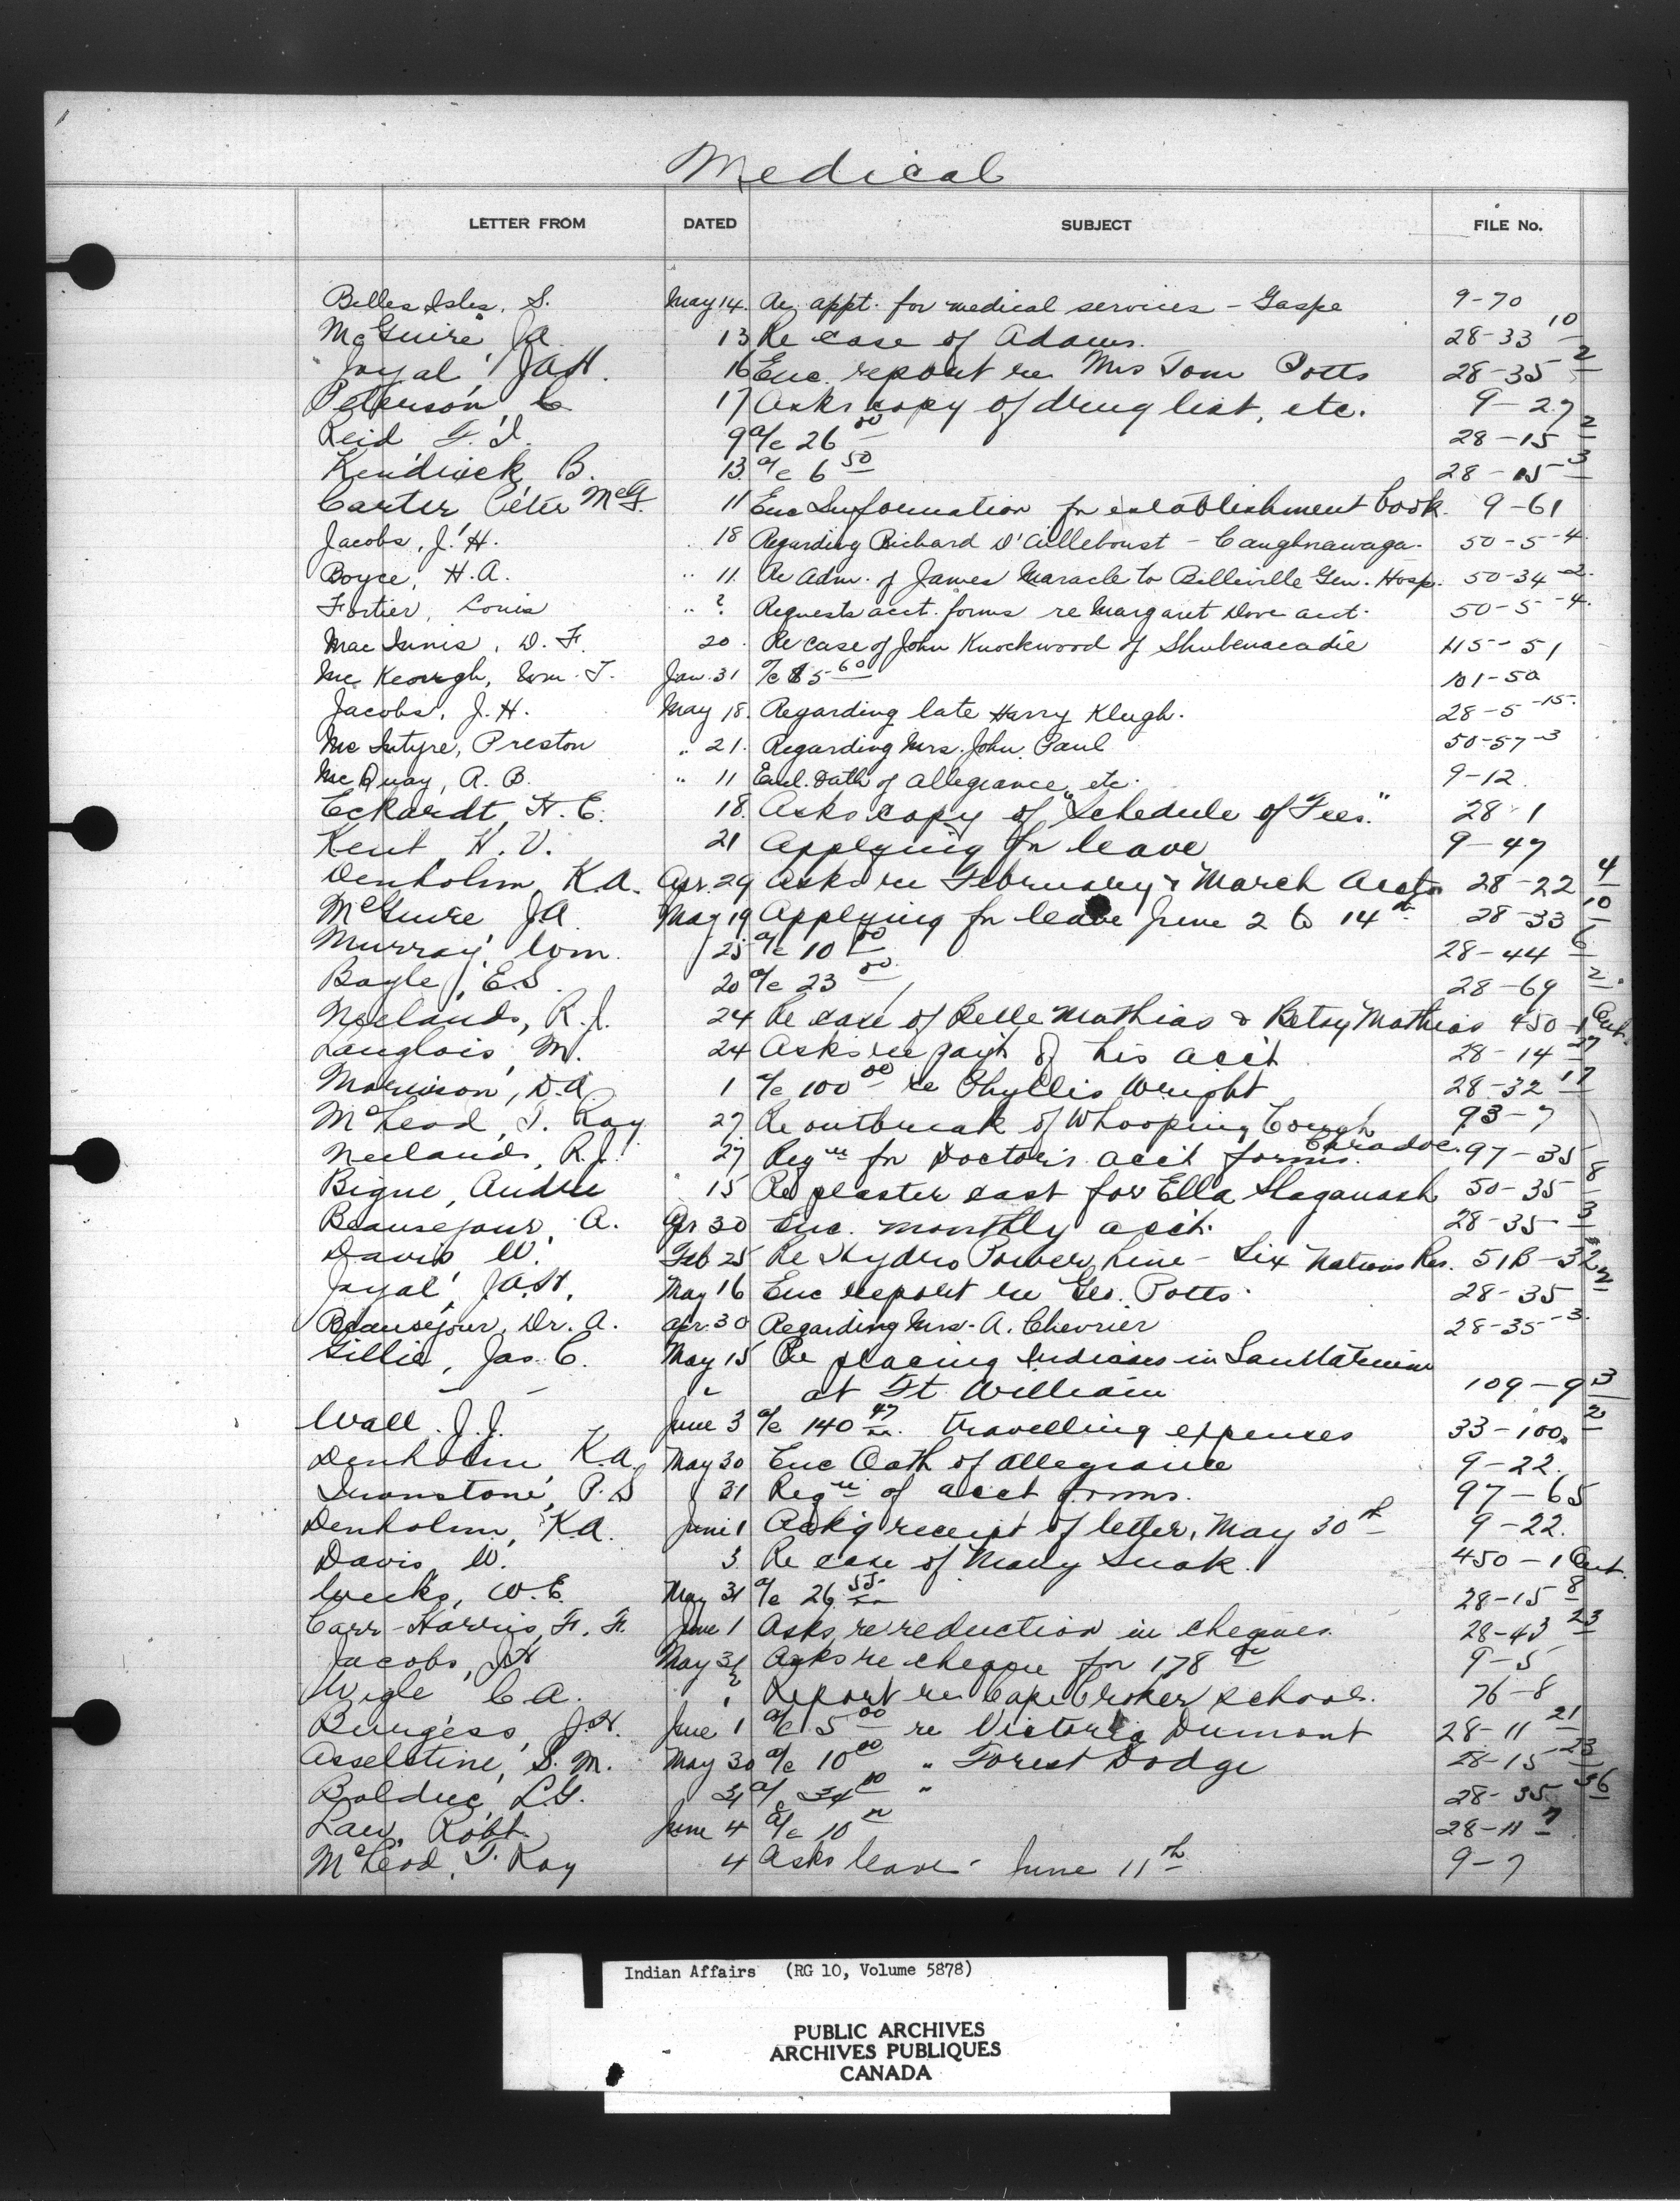 Medical
LETTER FROM DATED SUBJECT FILE No.
Belles Isles, S. May 14. Re appt. for medical services - Gaspe 9-70
McGuire JA 13 Re case of Adams. 28-33 10
Joyal, JAH. 16 Enc. report re Mrs Tom Potts 28-35 2
Peterson, C 17 Asks copy of drug list, etc. 9-27
Reid F.I. 9 a/c 26 00 28-15 2
Kendrick B. 13 a/c 6 50 28-15 3
Carter Peter McG. 11 Enc Information for establishment book. 9-61
Jacobs, J.H. 18 Regarding Richard D'Ailleboust - Caughnawaga. 50-5-4.
Boyce, H.A. " 11. Re Adm. of James Maracle to Belleville Gen. Hosp. 50-34-2.
Fortier, Louis " ? Requests acct. forms re Margaret Dove acct. 50-5-4.
MacInnis, D. F. 20. Re case of John Knockwood of Shubenacadie 115-51
Mc Keough, Wm. T. Jan. 31 a/c $5 60 101-50
Jacobs, J.H. May 18. Regarding late Harry Klugh. 28-5-15.
McIntyre, Preston " 21. Regarding Mrs. John Paul 50-57-3
McQuay, A. B. " 11 Encl. Oath of allegiance, etc. 9-12
Eckardt, H. E. 18. Asks copy of "Schedule of Fees." 28-1
Kent H. V. 21 Applying for leave 9-47
Denholm, K.A. Apr. 29 Asks re February & March Accts 28-22 4
McGuire JA May 19 Applying for leave June 2 to 14th 28-33 10
Murray, Wm. 25 a/c 10 00 28-44 6
Bagle, E.S. 20 a/c 23 00 28-69 2
Neelands, R.J. 24 Re case of Belle Mathias & Betsy Mathias 450-1 Ont.
Langlois, M. 24 Asks re paym't of his acc't 28-14 27
Morrison, D.A. 1 a/c 100 00 re Phyllis Wright 28-32 17
McLeod, T. Roy 27 Re outbreak of Whooping Cough Caradoc. 93-7
Neelands, R.J. 27 Reqn for Doctor's acc't forms. 97-35
Bigue, Andre 15 Re plaster cast for Ella Shaganash 50-35 8
Beausejour, A. Apr 30 Enc. monthly acc't. 28-35-3
Davis W. Feb 25 Re Hydro Power Line - Six Nations Res. 51B-32
Joyal, JAH. May 16 Enc report re Geo. Potts. 28-35 2
Beausejour, Dr. A. Apr. 30 Regarding Mrs. A. Chevrier 28-35-3.
Gillie, Jas. C. May 15 Re placing Indians in Sanitarium
— — " at Ft. William 109-9 3
Wall. J.J. June 3 a/c 140 47 travelling expenses 33-100 2
Denholm, K.A. May 30 Enc Oath of Allegiance 9-22.
Ironstone, P.S 31 Reqn of acct forms. 97-65
Denholm, K.A. June 1 Ackg receipt of letter, May 30th 9-22.
Davis, W. 3 Re case of Mary Snak. 450-1 Ont.
Weeks, W.E. May 31 a/c 26 55 28-15 8
Carr-Harris, F. F. June 1 Asks re reduction in cheques. 28-43 23
Jacobs, JH May 31 Asks re cheque for 178 00 9-5
Wigle C.A. " ? Report re Cape Croker school. 76-8
Burgess, J.H. June 1 a/c 5 00 re Victoria Dumont 28-11 21
Asselstine, S. M. May 30 a/c 10 00 " Forest Dodge 28-15-23
Bolduc, L.G. 31 a/c 34 10 " 28-35 36
Law, Robt. June 4 a/c 10 00 28-11 7
McLeod, T. Roy 4 Asks leave - June 11th 9-7
Indian Affairs (RG 10, Volume 5878)
PUBLIC ARCHIVES
ARCHIVES PUBLIQUES
CANADA